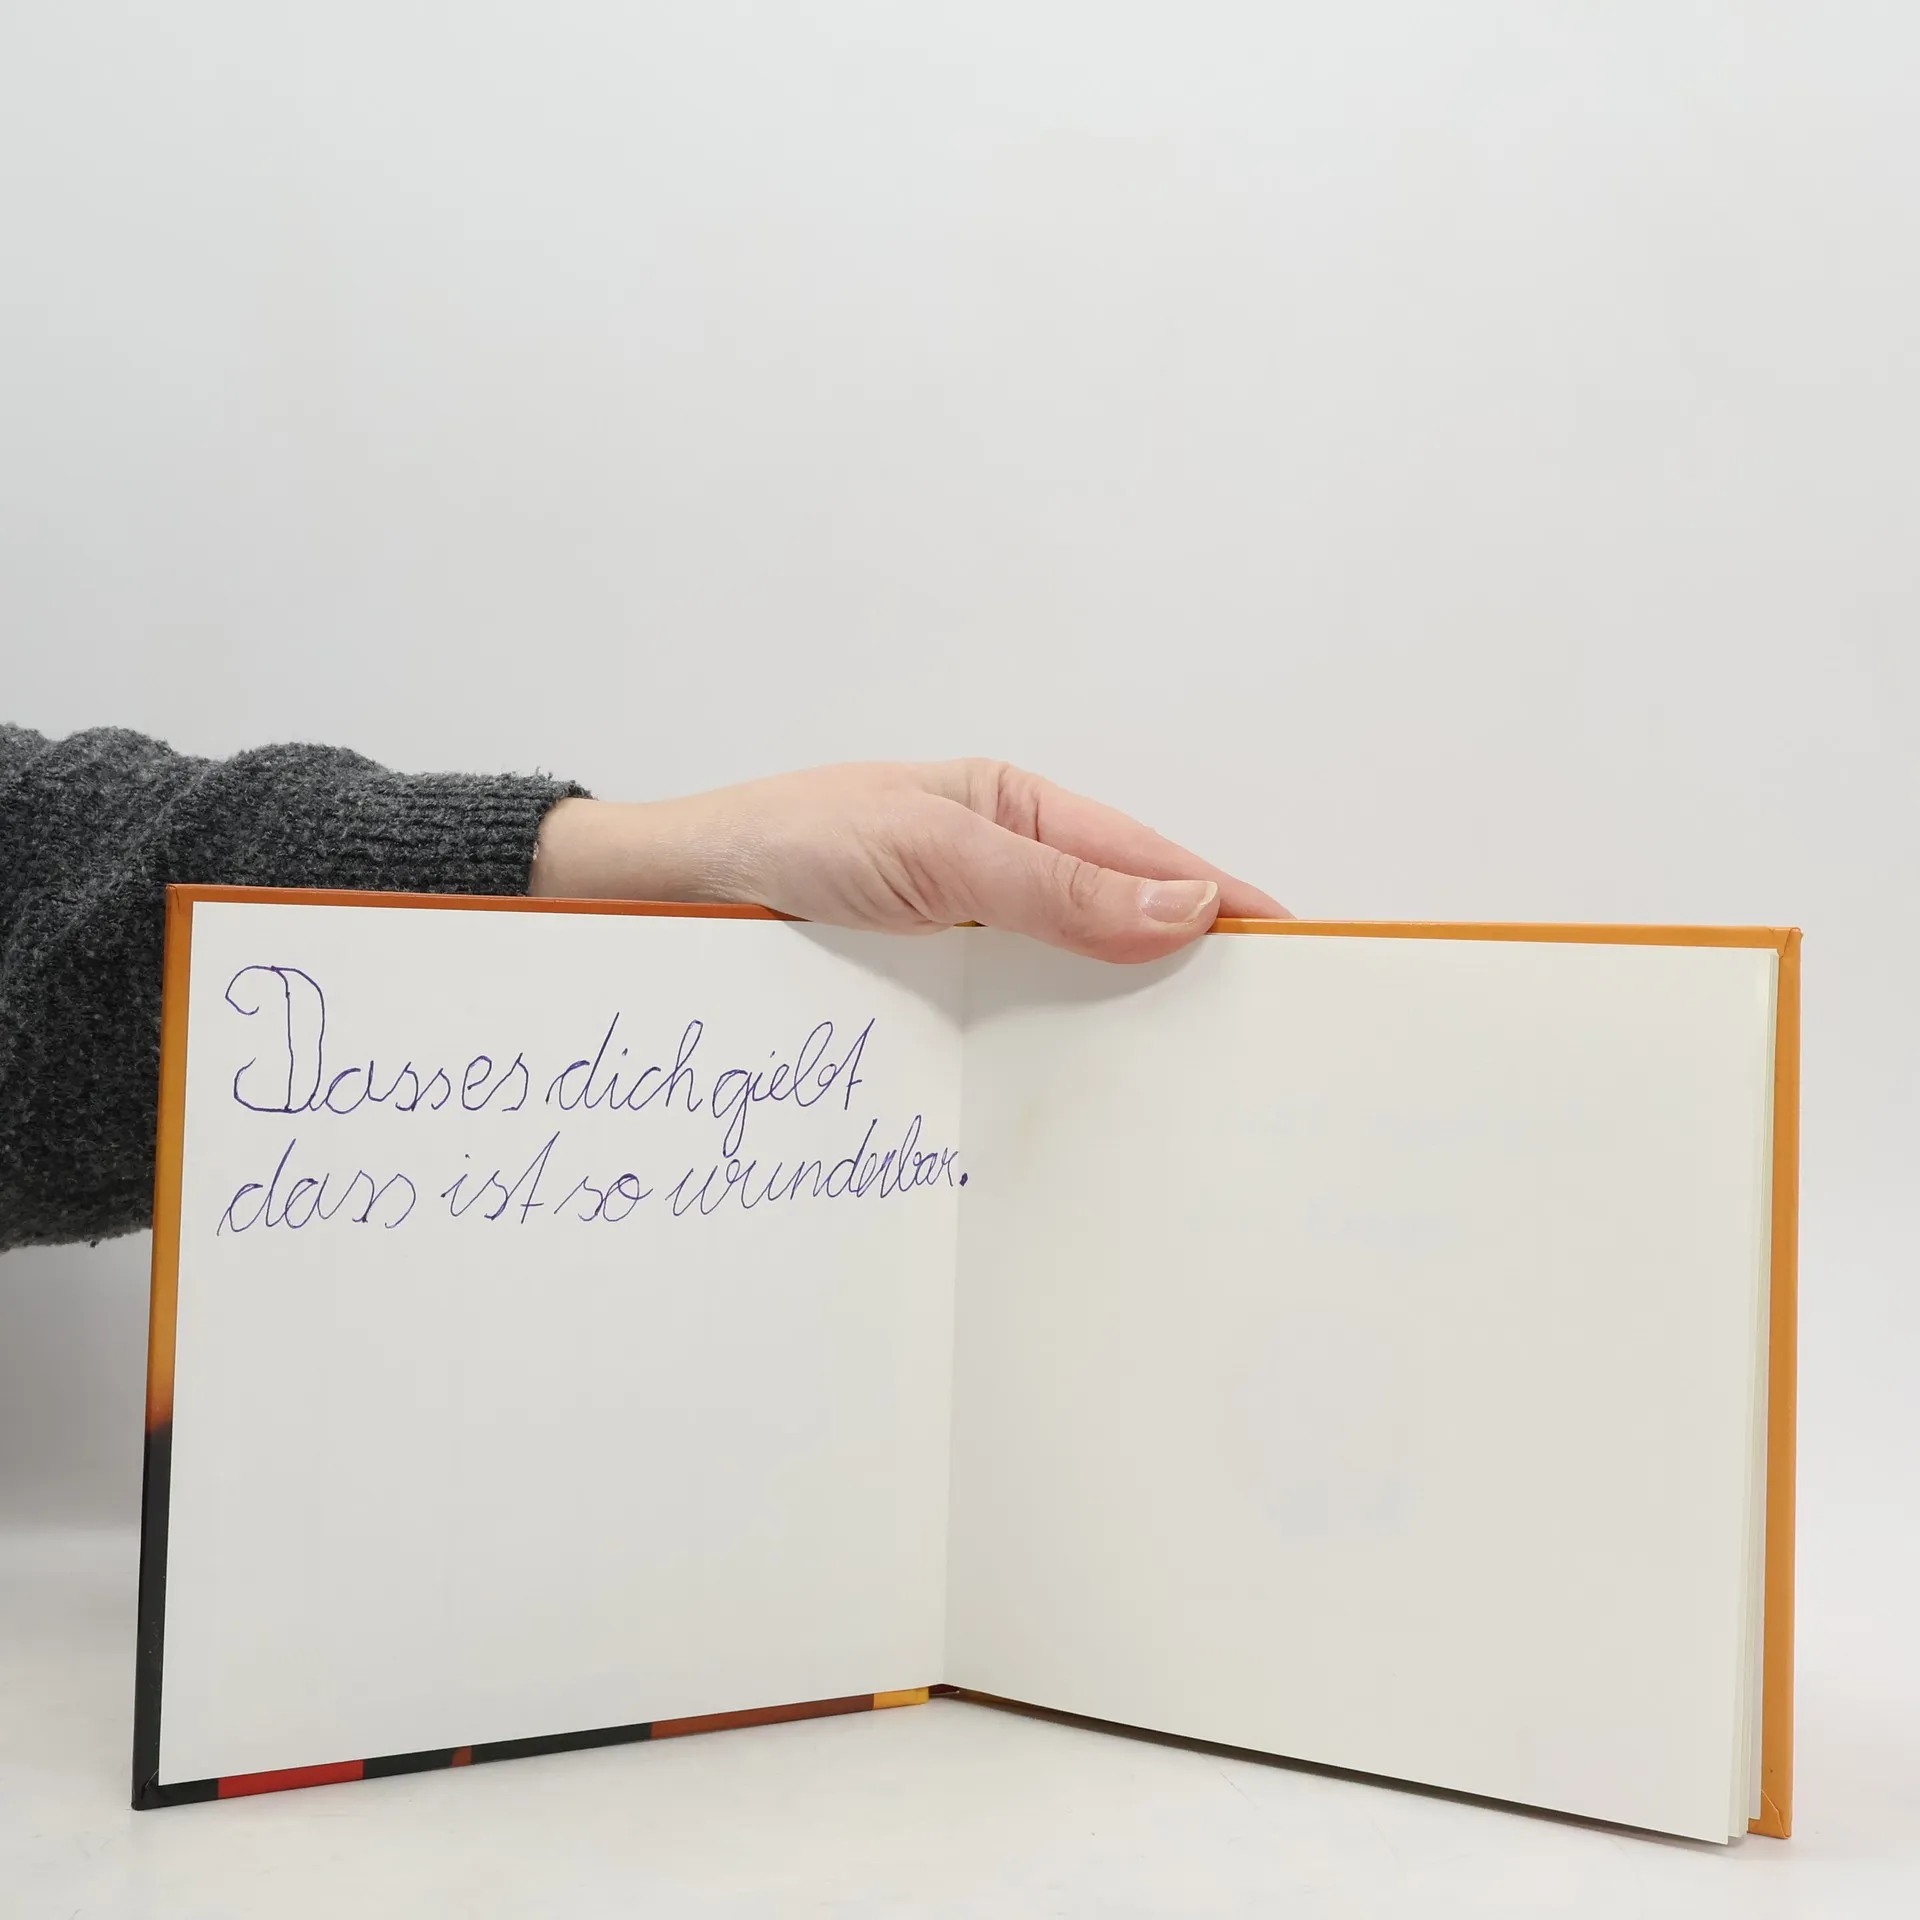 Dass es dich giebt
dass ist so wunderbar.